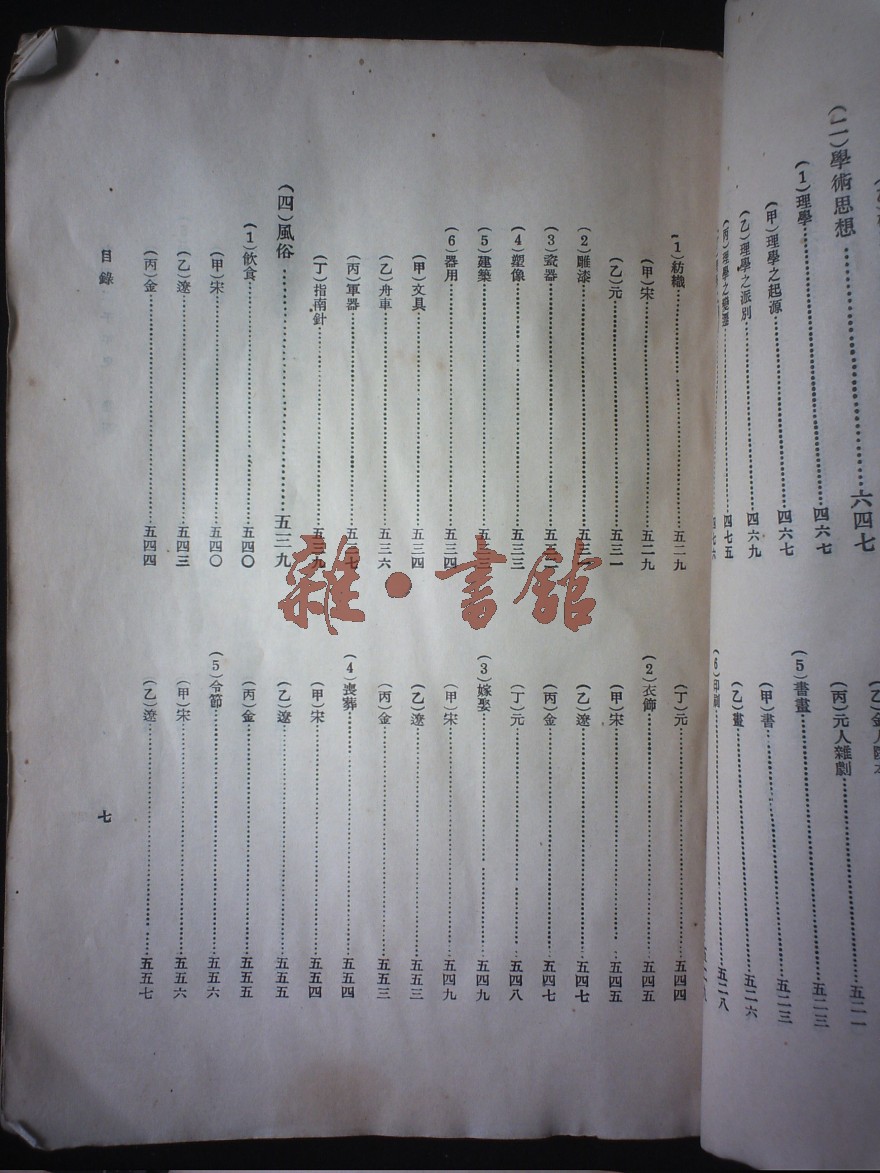 (二)學術思想……六四七
(1)理學……四六七
(甲)理學之起源……四六七
(乙)理學之派別……四六九
(丙)理學之變遷……四七五
(丙)元人雜劇……五二一
(5)書畫……五二三
(甲)書……五二三
(乙)畫……五二六
(6)印刷……五二八
(1)紡織……五二九
(甲)宋……五二九
(乙)元……五三一
(2)雕漆……五三一
(3)瓷器……五三二
(4)塑像……五三三
(5)建築……五三三
(6)器用……五三四
(甲)文具……五三四
(乙)舟車……五三六
(丙)軍器……五三七
(丁)指南針……五三九
(四)風俗……五三九
(1)飲食……五四〇
(甲)宋……五四〇
(乙)遼……五四三
(丙)金……五四四
(丁)元……五四四
(2)衣飾……五四五
(甲)宋……五四五
(乙)遼……五四七
(丙)金……五四七
(丁)元……五四八
(3)嫁娶……五四九
(甲)宋……五四九
(乙)遼……五五三
(丙)金……五五三
(4)喪葬……五五四
(甲)宋……五五四
(乙)遼……五五五
(丙)金……五五五
(5)令節……五五六
(甲)宋……五五六
(乙)遼……五五七
目錄
七
雜·書館